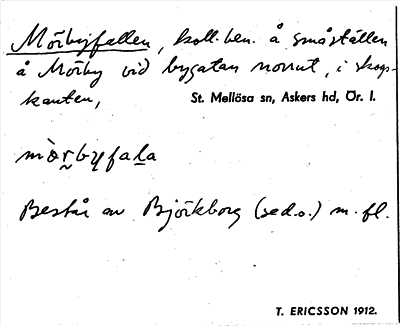 Mörbyfallen, koll. ben. å småställen
å Mörby vid bygatan norrut, i skogs-
kanten,
St. Mellösa sn, Askers hd, Ör. l.
mòrbyfala
Består av Björkborg (se d.o.) m. fl.
T. ERICSSON 1912.